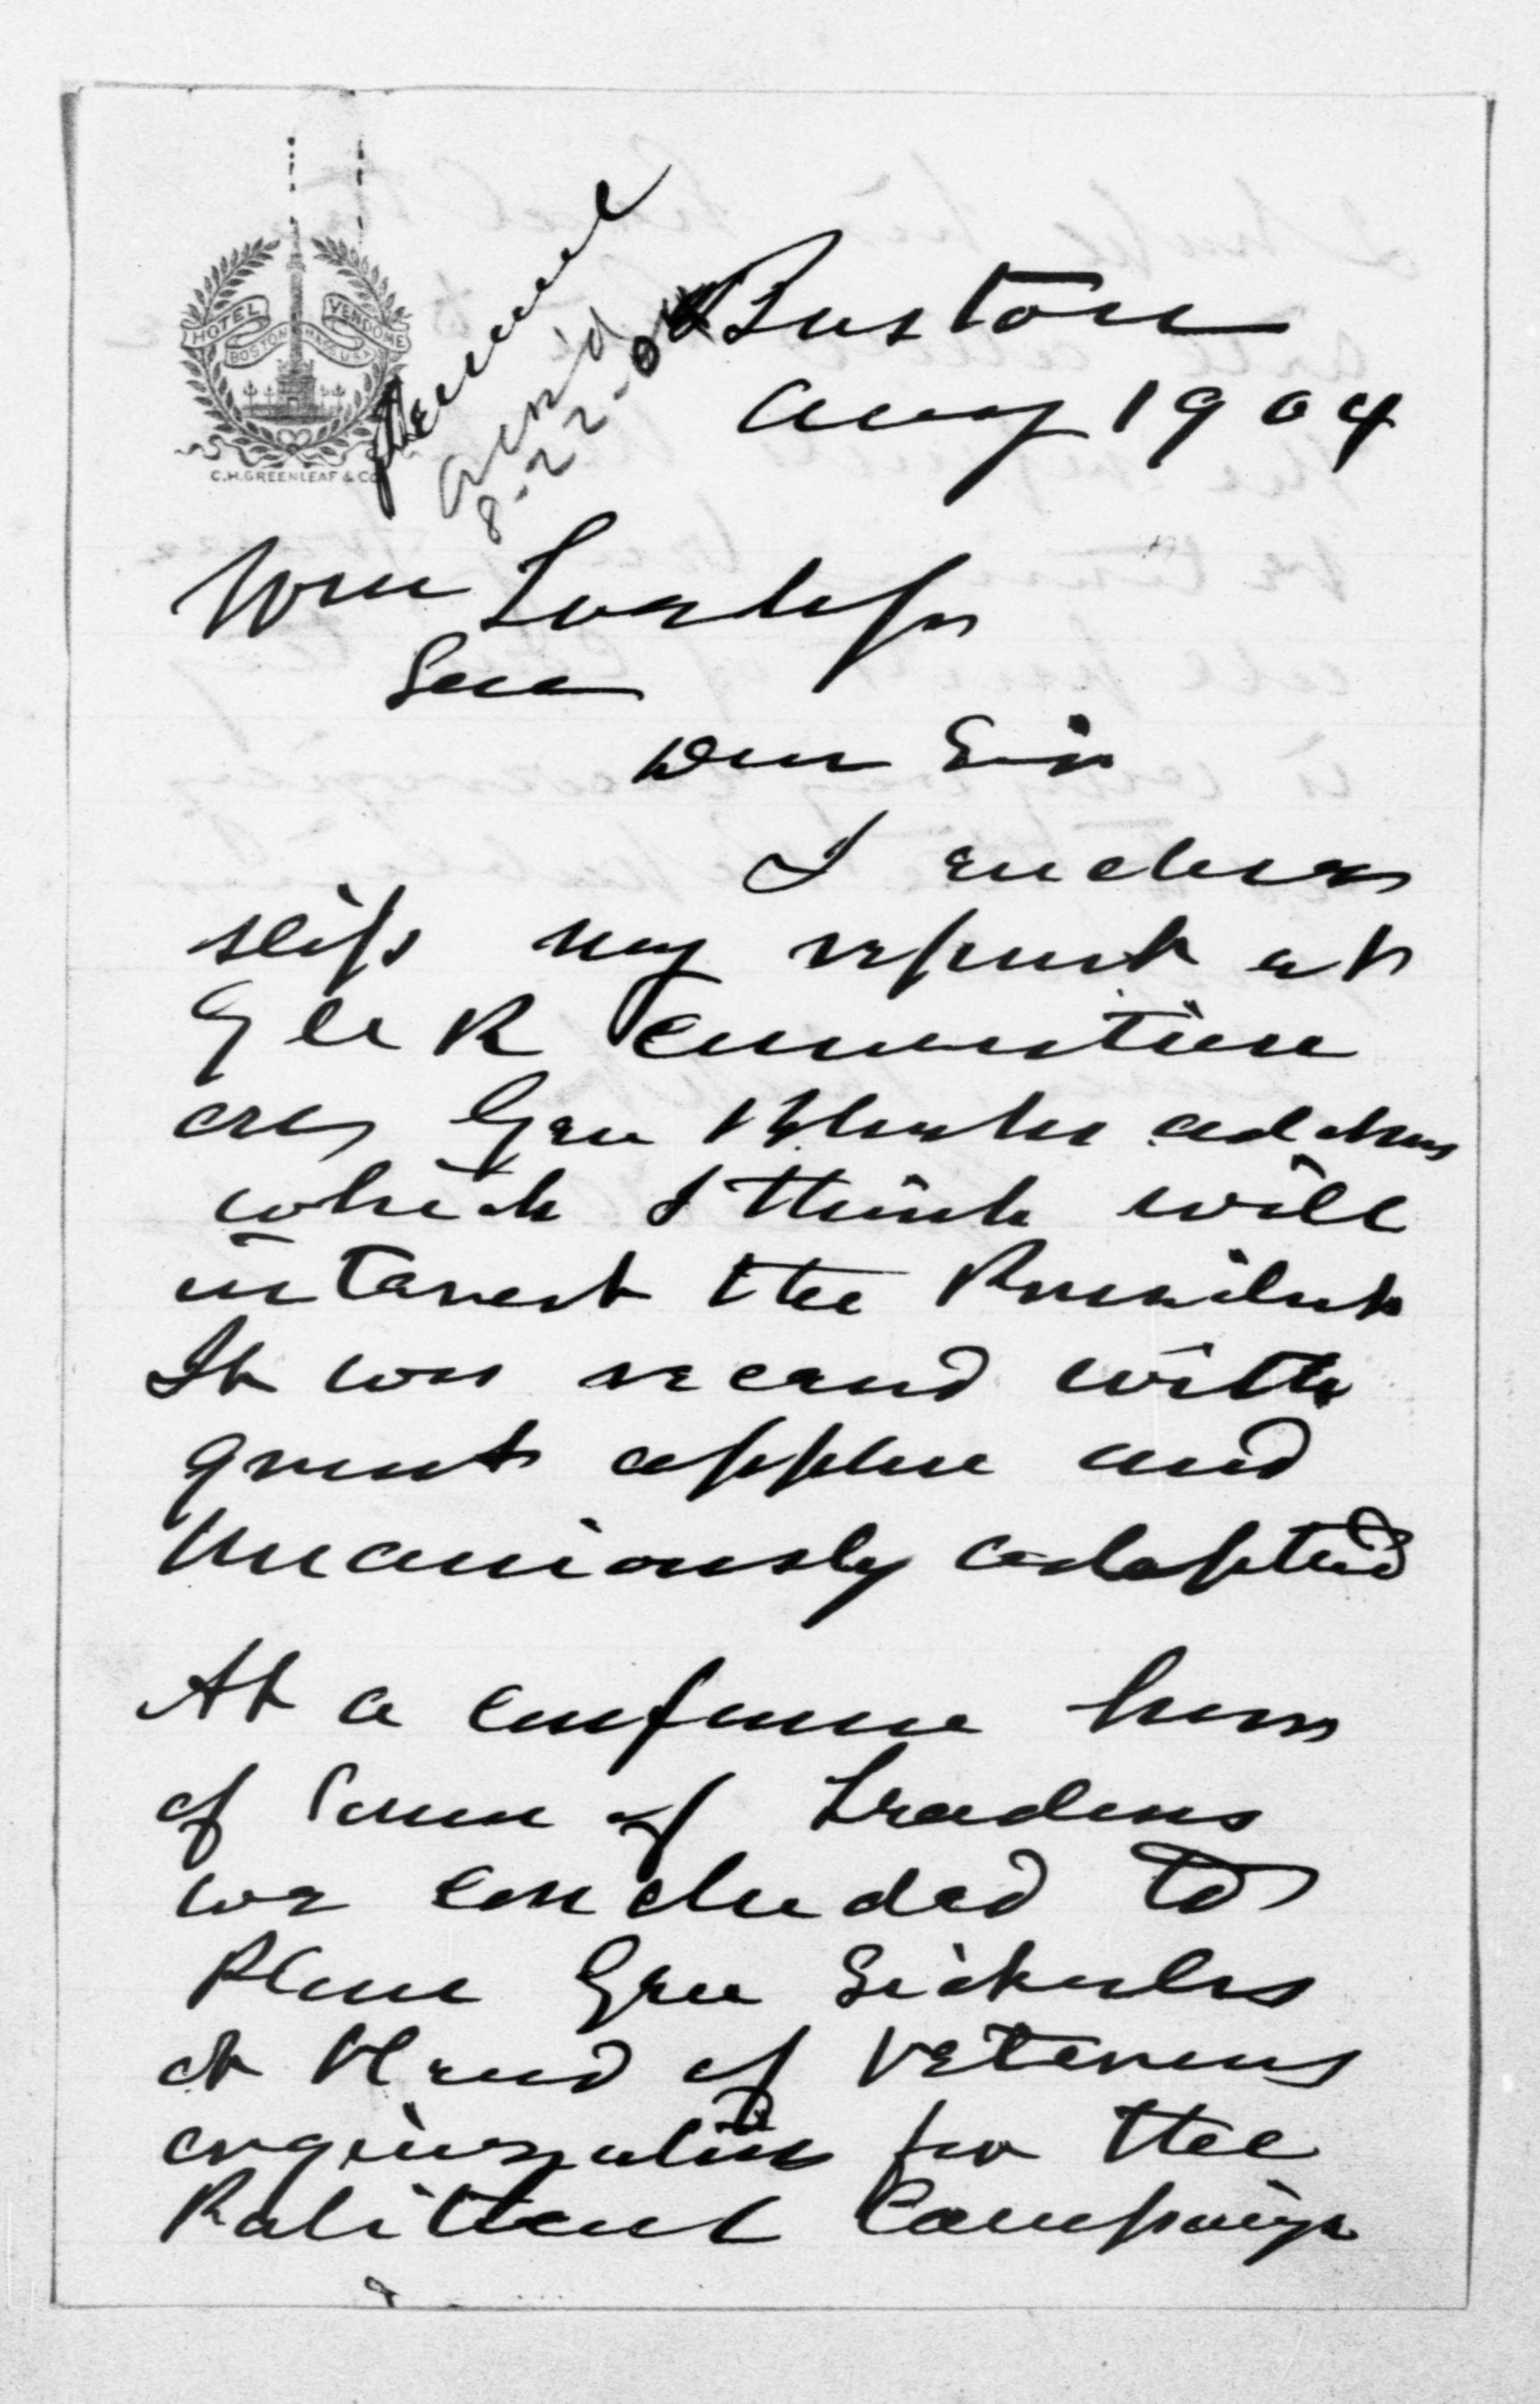 HOTEL VENDOME
BOSTON MASS. U.S.A.
C.H. GREENLEAF & CO.
Personal
Ack'd
8-22-04
Boston
Aug 1904
Wm Loeb Jr
Secr
Dear Sir
I enclose
slips my report at
G A R Convention
on Gen Blacks address
which I think will
interest the President
It was received with
great applause and
Unaniously adopted
At a conference here
of some of Leaders
we concluded to
Place Gen Sickles
at Head of Veterans
orginization for the
Political Campaign